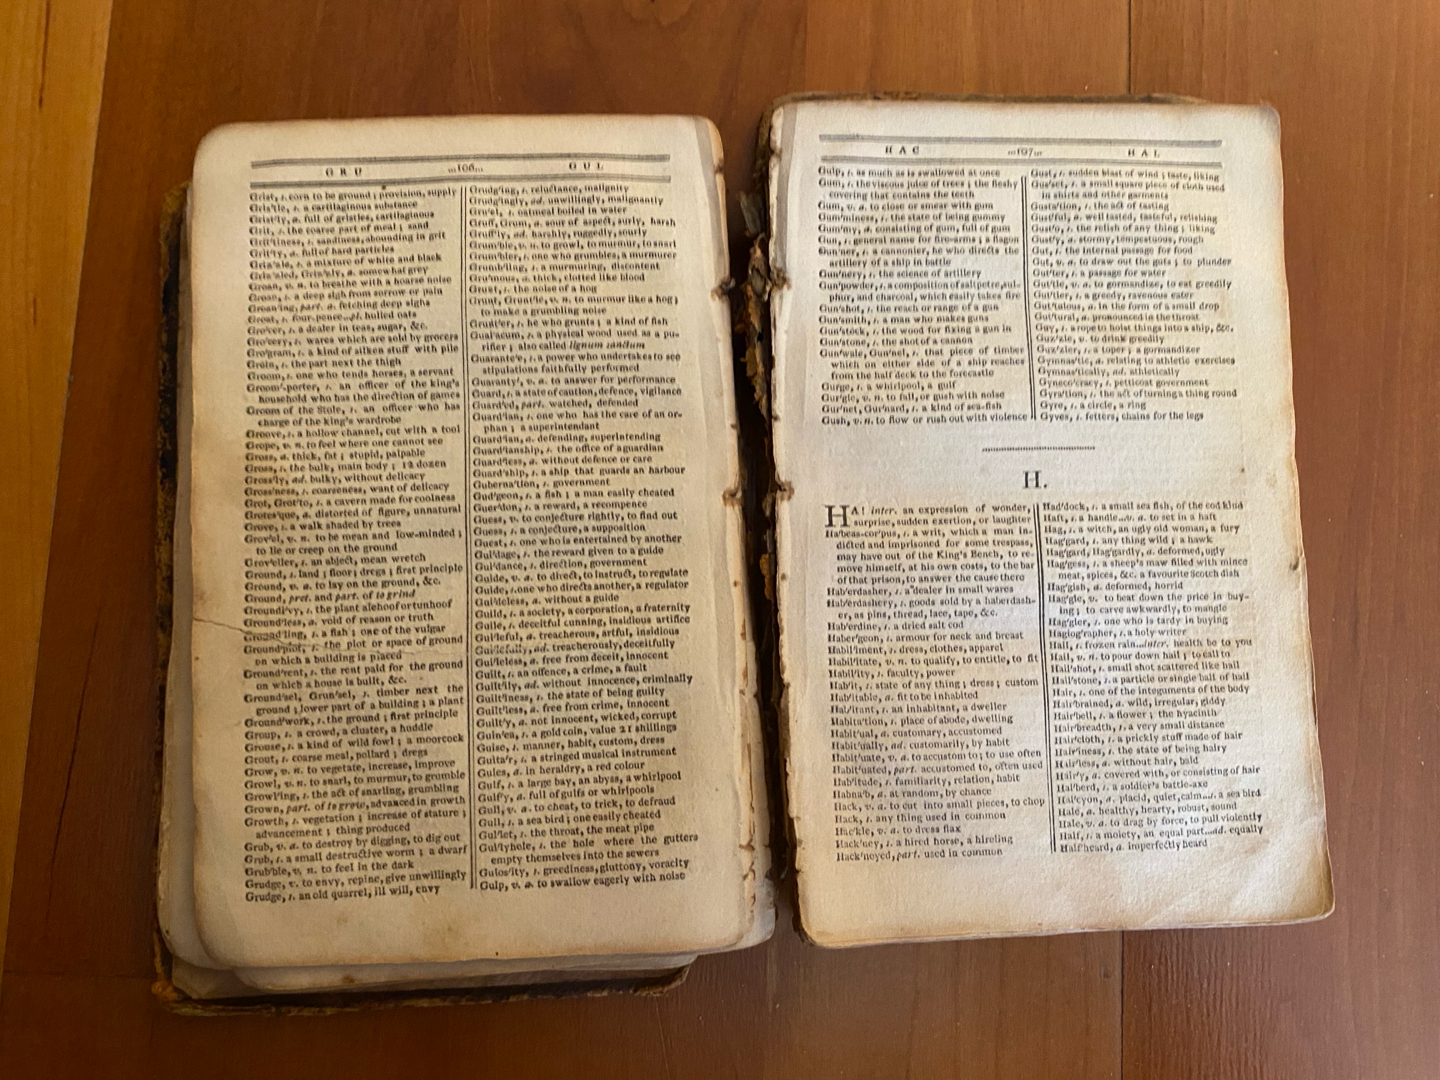 GRU ...106... GUL
Grist, s. corn to be ground; provision, supply
Gris'tle, s. a cartilaginous substance
Grist'ly, a. full of gristles, cartilaginous
Grit, s. the coarse part of meal; sand
Grit'tiness, s. sandiness, abounding in grit
Grit'ty, a. full of hard particles
Griz'zle, s. a mixture of white and black
Griz'zled, Griz'zly, a. somewhat grey
Groan, v. n. to breathe with a hoarse noise
Groan, s. a deep sigh from sorrow or pain
Groan'ing, part. a. fetching deep sighs
Groat, s. four-pence...pl. hulled oats
Gro'cer, s. a dealer in teas, sugar, &c.
Gro'cery, s. wares which are sold by grocers
Gro'gram, s. a kind of silken stuff with pile
Groin, s. the part next the thigh
Groom, s. one who tends horses, a servant
Groom'-porter, s. an officer of the king's
household who has the direction of games
Groom of the Stole, s. an officer who has
charge of the king's wardrobe
Groove, s. a hollow channel, cut with a tool
Grope, v. n. to feel where one cannot see
Gross, a. thick, fat; stupid, palpable
Gross, s. the bulk, main body; 12 dozen
Gross'ly, ad. bulky, without delicacy
Gross'ness, s. coarseness, want of delicacy
Grot, Grot'to, s. a cavern made for coolness
Grotesque, a. distorted of figure, unnatural
Grove, s. a walk shaded by trees
Grov'el, v. n. to be mean and low-minded;
to lie or creep on the ground
Grov'eller, s. an abject, mean wretch
Ground, s. land; floor; dregs; first principle
Ground, v. a. to lay on the ground, &c.
Ground, pret. and part. of to grind
Ground'ivy, s. the plant alehoof or tunhoof
Ground'less, a. void of reason or truth
Ground'ling, s. a fish; one of the vulgar
Ground'plot, s. the plot or space of ground
on which a building is placed
Ground'rent, s. the rent paid for the ground
on which a house is built, &c.
Ground'sel, Grun'sel, s. timber next the
ground; lower part of a building; a plant
Ground'work, s. the ground; first principle
Group, s. a crowd, a cluster, a huddle
Grouse, s. a kind of wild fowl; a moorcock
Grout, s. coarse meal, pollard; dregs
Grow, v. n. to vegetate, increase, improve
Growl, v. n. to snarl, to murmur, to grumble
Growl'ing, s. the act of snarling, grumbling
Grown, part. of to grow, advanced in growth
Growth, s. vegetation; increase of stature;
advancement; thing produced
Grub, v. a. to destroy by digging, to dig out
Grub, s. a small destructive worm; a dwarf
Grub'ble, v. n. to feel in the dark
Grudge, v. to envy, repine, give unwillingly
Grudge, s. an old quarrel, ill will, envy
Grudg'ing, s. reluctance, malignity
Grudg'ingly, ad. unwillingly, malignantly
Gru'el, s. oatmeal boiled in water
Gruff, Grum, a. sour of aspect, surly, harsh
Gruff'ly, ad. harshly, ruggedly, sourly
Grum'ble, v. n. to growl, to murmur, to snarl
Grum'bler, s. one who grumbles, a murmurer
Grumb'ling, s. a murmuring, discontent
Gru'mous, a. thick, clotted like blood
Grunt, s. the noise of a hog
Grunt, Grun'tle, v. n. to murmur like a hog;
to make a grumbling noise
Grunt'er, s. he who grunts; a kind of fish
Guai'acum, s. a physical wood used as a pu-
rifier; also called lignum sanctum
Guarante'e, s. a power who undertakes to see
stipulations faithfully performed
Guaranty', v. a. to answer for performance
Guard, s. a state of caution, defence, vigilance
Guard'ed, part. watched, defended
Guard'ian, s. one who has the care of an or-
phan; a superintendant
Guard'ian, a. defending, superintending
Guard'ianship, s. the office of a guardian
Guard'less, a. without defence or care
Guard'ship, s. a ship that guards an harbour
Guberna'tion, s. government
Gud'geon, s. a fish; a man easily cheated
Guer'don, s. a reward, a recompence
Guess, v. to conjecture rightly, to find out
Guess, s. a conjecture, a supposition
Guest, s. one who is entertained by another
Gui'dage, s. the reward given to a guide
Gui'dance, s. direction, government
Guide, v. a. to direct, to instruct, to regulate
Guide, s. one who directs another, a regulator
Gui'deless, a. without a guide
Guild, s. a society, a corporation, a fraternity
Guile, s. deceitful cunning, insidious artifice
Gui'leful, a. treacherous, artful, insidious
Gui'lefully, ad. treacherously, deceitfully
Gui'leless, a. free from deceit, innocent
Guilt, s. an offence, a crime, a fault
Guilt'ily, ad. without innocence, criminally
Guilt'iness, s. the state of being guilty
Guilt'less, a. free from crime, innocent
Guilt'y, a. not innocent, wicked, corrupt
Guin'ea, s. a gold coin, value 21 shillings
Guise, s. manner, habit, custom, dress
Guita'r, s. a stringed musical instrument
Gules, a. in heraldry, a red colour
Gulf, s. a large bay, an abyss, a whirlpool
Gulf'y, a. full of gulfs or whirlpools
Gull, v. a. to cheat, to trick, to defraud
Gull, s. a sea bird; one easily cheated
Gul'let, s. the throat, the meat pipe
Gul'lyhole, s. the hole where the gutters
empty themselves into the sewers
Gulos'ity, s. greediness, gluttony, voracity
Gulp, v. a. to swallow eagerly with noise
HAC ...107... HAL
Gulp, s. as much as is swallowed at once
Gum, s. the viscous juice of trees; the fleshy
covering that contains the teeth
Gum, v. a. to close or smear with gum
Gum'miness, s. the state of being gummy
Gum'my, a. consisting of gum, full of gum
Gun, s. general name for fire-arms; a flagon
Gun'ner, s. a cannonier, he who directs the
artillery of a ship in battle
Gun'nery, s. the science of artillery
Gun'powder, s. a composition of saltpetre, sul-
phur, and charcoal, which easily takes fire
Gun'shot, s. the reach or range of a gun
Gun'smith, s. a man who makes guns
Gun'stock, s. the wood for fixing a gun in
Gun'stone, s. the shot of a cannon
Gun'wale, Gun'nel, s. that piece of timber
which on either side of a ship reaches
from the half deck to the forecastle
Gurge, s. a whirlpool, a gulf
Gur'gle, v. n. to fall, or gush with noise
Gur'net, Gur'nard, s. a kind of sea-fish
Gush, v. n. to flow or rush out with violence
Gust, s. sudden blast of wind; taste, liking
Gus'set, s. a small square piece of cloth used
in shirts and other garments
Gusta'tion, s. the act of tasting
Gust'ful, a. well tasted, tasteful, relishing
Gus'to, s. the relish of any thing; liking
Gust'y, a. stormy, tempestuous, rough
Gut, s. the internal passage for food
Gut, v. a. to draw out the guts; to plunder
Gut'ter, s. a passage for water
Gut'tle, v. a. to gormandize, to eat greedily
Gut'tler, s. a greedy, ravenous eater
Gut'tulous, a. in the form of a small drop
Gut'tural, a. pronounced in the throat
Guy, s. a rope to hoist things into a ship, &c.
Guz'zle, v. to drink greedily
Guz'zler, s. a toper; a gormandizer
Gymnas'tic, a. relating to athletic exercises
Gymnas'tically, ad. athletically
Gyneco'cracy, s. petticoat government
Gyra'tion, s. the act of turning a thing round
Gyre, s. a circle, a ring
Gyves, s. fetters, chains for the legs
H.
HA! inter. an expression of wonder,
surprise, sudden exertion, or laughter
Ha'beas-cor'pus, s. a writ, which a man in-
dicted and imprisoned for some trespass,
may have out of the King's Bench, to re-
move himself, at his own costs, to the bar
of that prison, to answer the cause there
Hab'erdasher, s. a dealer in small wares
Hab'erdashery, s. goods sold by a haberdash-
er, as pins, thread, lace, tape, &c.
Hab'erdine, s. a dried salt cod
Haber'geon, s. armour for neck and breast
Habil'iment, s. dress, clothes, apparel
Habil'itate, v. n. to qualify, to entitle, to fit
Habil'ity, s. faculty, power
Hab'it, s. state of any thing; dress; custom
Hab'itable, a. fit to be inhabited
Hab'itant, s. an inhabitant, a dweller
Habita'tion, s. place of abode, dwelling
Habit'ual, a. customary, accustomed
Habit'ually, ad. customarily, by habit
Habit'uate, v. a. to accustom to; to use often
Habit'uated, part. accustomed to, often used
Hab'itude, s. familiarity, relation, habit
Habnab, a. at random, by chance
Hack, v. a. to cut into small pieces, to chop
Hack, s. any thing used in common
Hac'kle, v. a. to dress flax
Hack'ney, s. a hired horse, a hireling
Hack'neyed, part. used in common
Had'dock, s. a small sea fish, of the cod kind
Haft, s. a handle...v. a. to set in a haft
Hag, s. a witch, an ugly old woman, a fury
Hag'gard, s. any thing wild; a hawk
Hag'gard, Hag'gardly, a. deformed, ugly
Hag'gess, s. a sheep's maw filled with mince
meat, spices, &c. a favourite Scotch dish
Hag'gish, a. deformed, horrid
Hag'gle, v. to beat down the price in buy-
ing; to carve awkwardly, to mangle
Hag'gler, s. one who is tardy in buying
Hagiog'rapher, s. a holy writer
Hail, s. frozen rain...inter. health be to you
Hail, v. n. to pour down hail; to call to
Hail'shot, s. small shot scattered like hail
Hail'stone, s. a particle or single ball of hail
Hair, s. one of the integuments of the body
Hair'brained, a. wild, irregular, giddy
Hair'bell, s. a flower; the hyacinth
Hair'breadth, s. a very small distance
Hair'cloth, s. a prickly stuff made of hair
Hair'iness, s. the state of being hairy
Hair'less, a. without hair, bald
Hair'y, a. covered with, or consisting of hair
Hal'berd, s. a soldier's battle-axe
Hal'cyon, a. placid, quiet, calm...s. a sea bird
Hale, a. healthy, hearty, robust, sound
Hale, v. a. to drag by force, to pull violently
Half, s. a moiety, an equal part...ad. equally
Half'heard, a. imperfectly heard